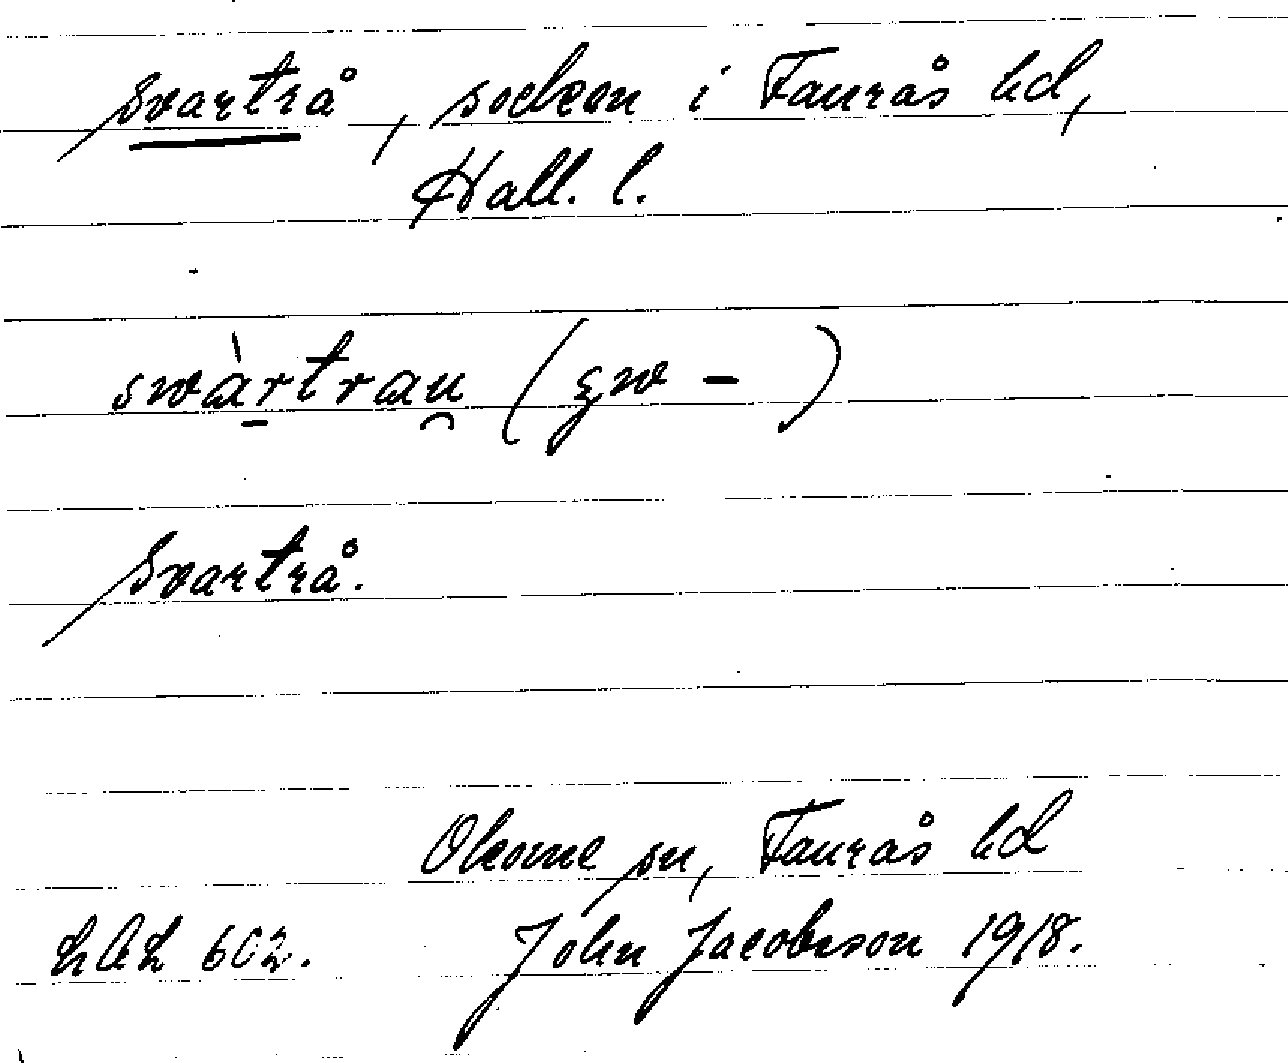 Svartrå, socken i Faurås hd,
Hall. l.
swàrtrau̯ (ʒw - )
Svartrå.
Okome sn, Faurås hd
LAL 602. John Jacobsson 1918.